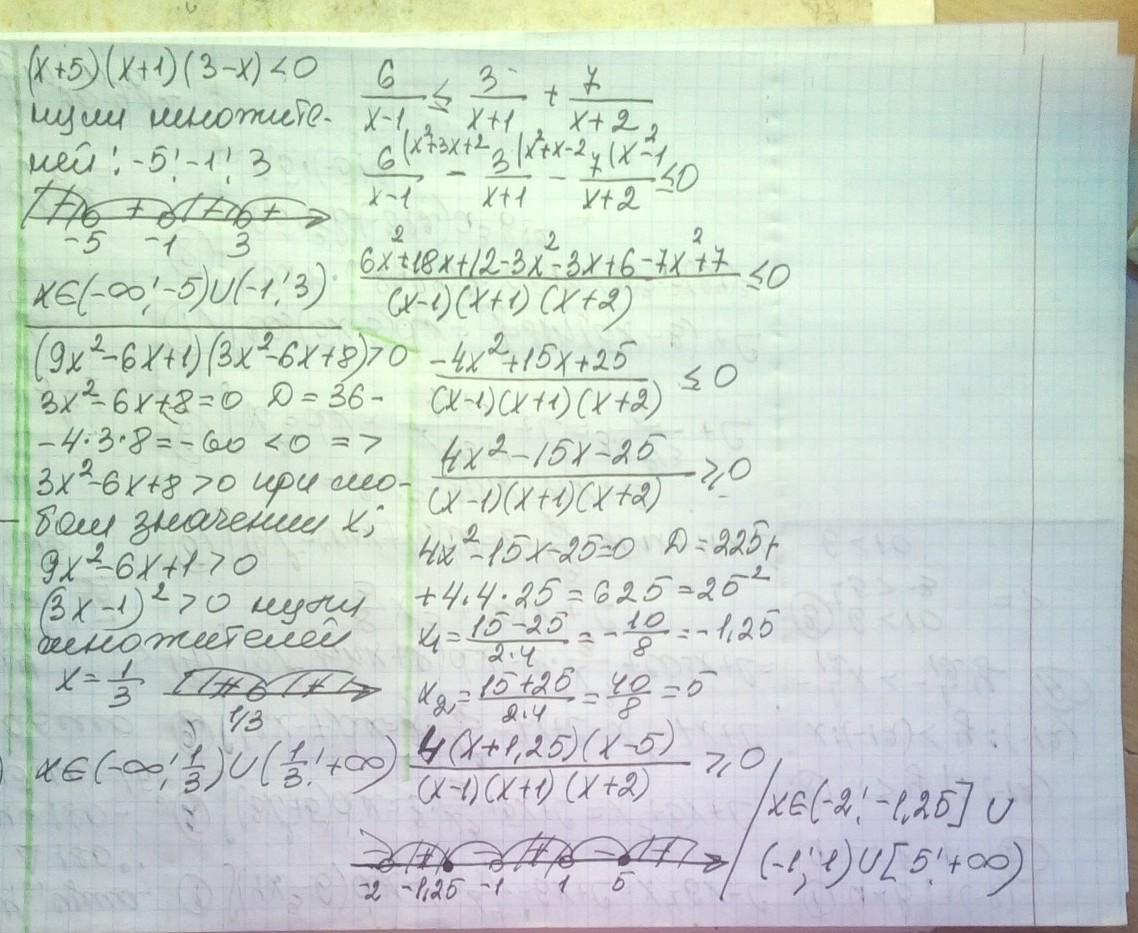 (x+5)(x+1)(3-x)<0
нули множите-
лей: -5; -1; 3
+ + + +
-5 -1 3
x∈(-∞; -5)∪(-1; 3)
(9x²-6x+1)(3x²-6x+8)>0
3x²-6x+8=0 D=36-
-4·3·8=-60<0 =>
3x²-6x+8>0 при лю-
бом значении x;
9x²-6x+1>0
(3x-1)²>0 нули
множителей
x=1/3
+ +
1/3
x∈(-∞; 1/3)∪(1/3; +∞)
6/(x-1) ≤ 3/(x+1) + 7/(x+2)
6(x²+3x+2/(x-1) - 3(x²+x-2/(x+1) - 7(x²-1/(x+2) ≤0
(6x²+18x+12-3x²-3x+6-7x²+7)/((x-1)(x+1)(x+2)) ≤0
(-4x²+15x+25)/((x-1)(x+1)(x+2)) ≤0
(4x²-15x-25)/((x-1)(x+1)(x+2)) ≥0
4x²-15x-25=0 D=225+
+4·4·25=625=25²
x₁=(15-25)/(2·4)=-10/8=-1,25
x₂=(15+25)/(2·4)=40/8=5
4(x+1,25)(x-5)/((x-1)(x+1)(x+2)) ≥0
- + - + - +
-2 -1,25 -1 1 5
x∈(-2; -1,25]∪
(-1; 1)∪[5; +∞)